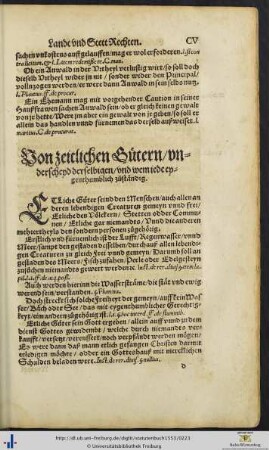 Landt vnd Stett Rechten. CV
suchen vnkostens auffgelauffen mag er wol erforderen.
Ob ein Anwald in der Vrtheyl verlustig wirt / so soll doch
dieselb Vrtheyl wider jn nit / sonder wider den Principal
vollnzogen werden / er were dann Anwald in sein selbs ding.
Ein Ehemann mag mit vorgehender Caution in seiner
Haußfrawen suchen Anwald sein / ob er gleich keinen gewalt
von jr hette / Wenn jm aber ein gewalt von jr geben / so soll er
allein das handlen vnd fürnemen das der selb außweiset.
Von zeitlichen Gütern / vn-
derscheyd derselbigen / vnd wem jede ey-
genthumblich zůständig.
ETliche Güter seind den Menschen / auch allen an
deren lebendigen Creaturen gemeyn vnnd frei /
Etliche den Völckern / Stetten oder Commu
nen / Etliche gar niemandes / Vnnd die anderen
mehrertheyls den sondern personen zůgehörig.
Erstlich vnd fürnemlich ist der Lufft / Regenwasser / vnnd
Meer / sampt den gestaden desselben / durchauß allen lebendi-
gen Creaturen zu gleich frei vnnd gemeyn / Darumb soll an
gestaden des Meers / Fisch zufahen / Perle oder Edelgesteyn
zusůchen niemandes gewert werden
Auch werden hierinn die Wasserströme / die stät vnd ewig
werend sein / verstanden.
Doch streckt sich solche Freiheyt der gemeyn / auff kein Was
ser / Bäch oder See / das mit eygenthumblicher Gerechtig-
keyt / einandern zůgehörig ist.
Etliche Güter sein Gott ergeben / allein auff vnnd zu dem
dienst Gottes gewendet / welche durch niemandes ver-
kaufft / versetzt / verenssert / noch verpfändt werden mögen /
Es were dann das man etlich gefangen Christen damit
erledigen möchte / odder ein Gotteshauß mit mercklichen
Schulden beladen wert.
http://dl.ub.uni-freiburg.de/diglit/statutenbuch1553/0223
© Universitätsbibliothek Freiburg